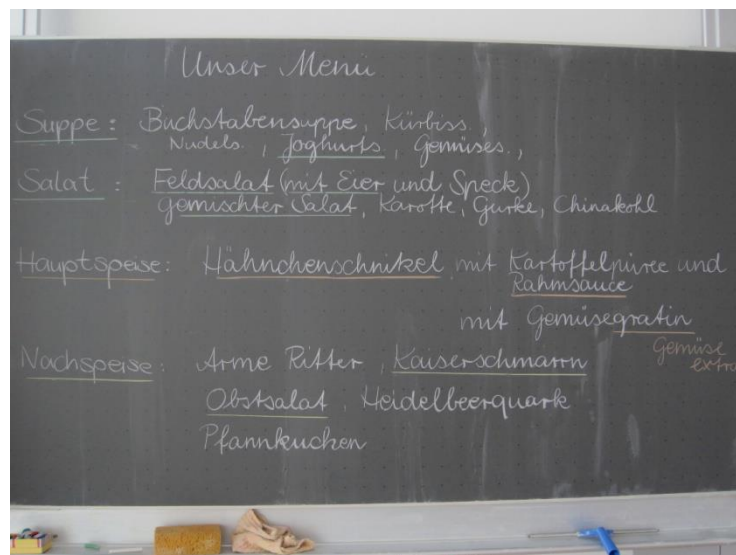 Unser Menü
Suppe: Buchstabensuppe, Kürbiss.,
Nudels., Joghurts., Gemüses.,
Salat: Feldsalat (mit Eier und Speck)
gemischter Salat, Karotte, Gurke, Chinakohl
Hauptspeise: Hähnchenschnikel mit Kartoffelpüree und
Rahmsauce
mit Gemüsegratin
Gemüse
extra
Nachspeise: Arme Ritter, Kaiserschmarrn
Obstsalat, Heidelbeerquark
Pfannkuchen